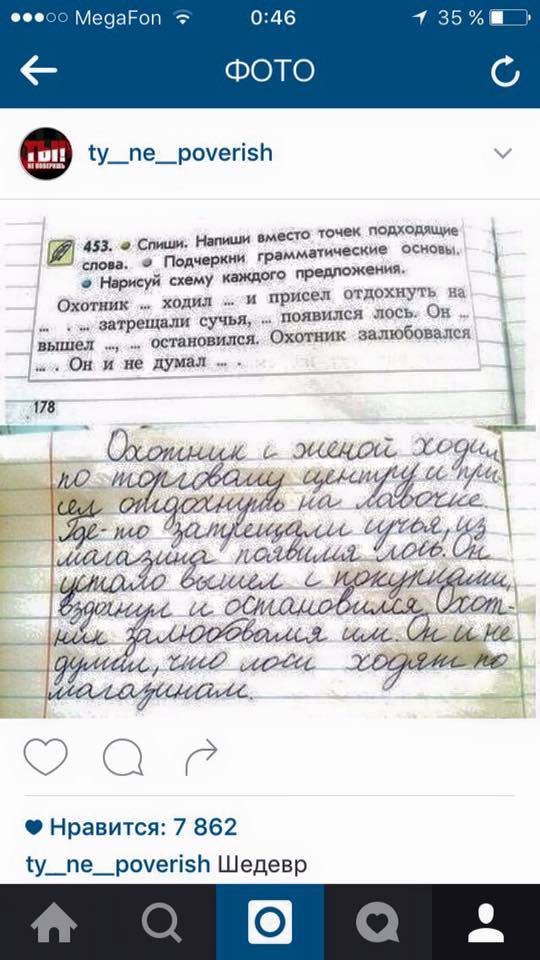 MegaFon 0:46 35 %
ФОТО
ТЫ!
НЕ ПОВЕРИШЬ
ty__ne__poverish
453. Спиши. Напиши вместо точек подходящие
слова. Подчеркни грамматические основы.
Нарисуй схему каждого предложения.
Охотник ... ходил ... и присел отдохнуть на
... . ... затрещали сучья, ... появился лось. Он ...
вышел ..., ... остановился. Охотник залюбовался
... . Он и не думал ... .
178
Охотник с женой ходил
по торговому центру и при-
сел отдохнуть на лавочке.
Где-то затрещали сучья, из
магазина появился лось. Он
устало вышел с покупками,
вздохнул и остановился. Охот-
ник залюбовался им. Он и не
думал, что лоси ходят по
магазинам.
Нравится: 7 862
ty__ne__poverish Шедевр